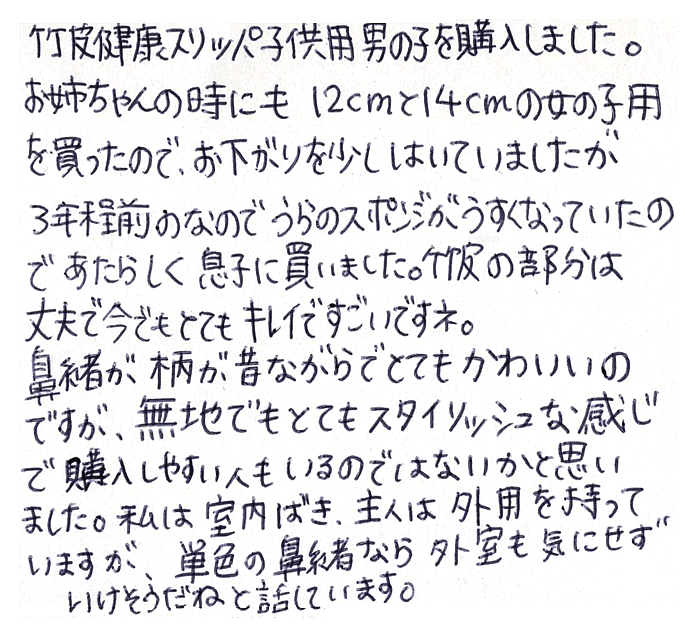 竹皮健康スリッパ子供用男の子を購入しました。
お姉ちゃんの時にも12cmと14cmの女の子用
を買ったので、お下がりを少しはいていましたが
3年程前のなのでうらのスポンジがうすくなっていたの
であたらしく息子に買いました。竹皮の部分は
丈夫で今でもとてもキレイですごいですネ。
鼻緒が、柄が昔ながらでとてもかわいいの
ですが、無地でもとてもスタイリッシュな感じ
で購入しやすい人もいるのではないかと思い
ました。私は室内ばき、主人は外用を持って
いますが、単色の鼻緒なら外室も気にせず
いけそうだねと話しています。